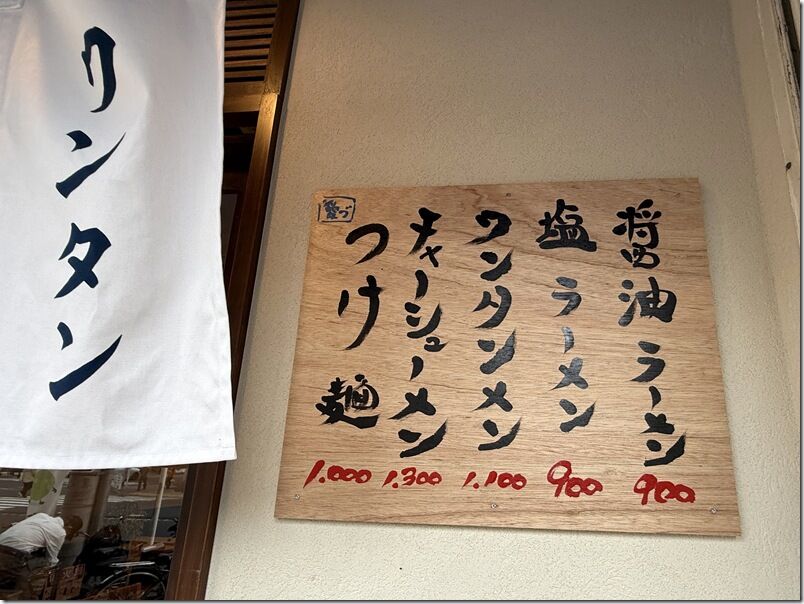 ワンタン
醤油ラーメン
900
塩ラーメン
900
ワンタンメン
1.100
チャーシューメン
1.300
つけ麺
1.000